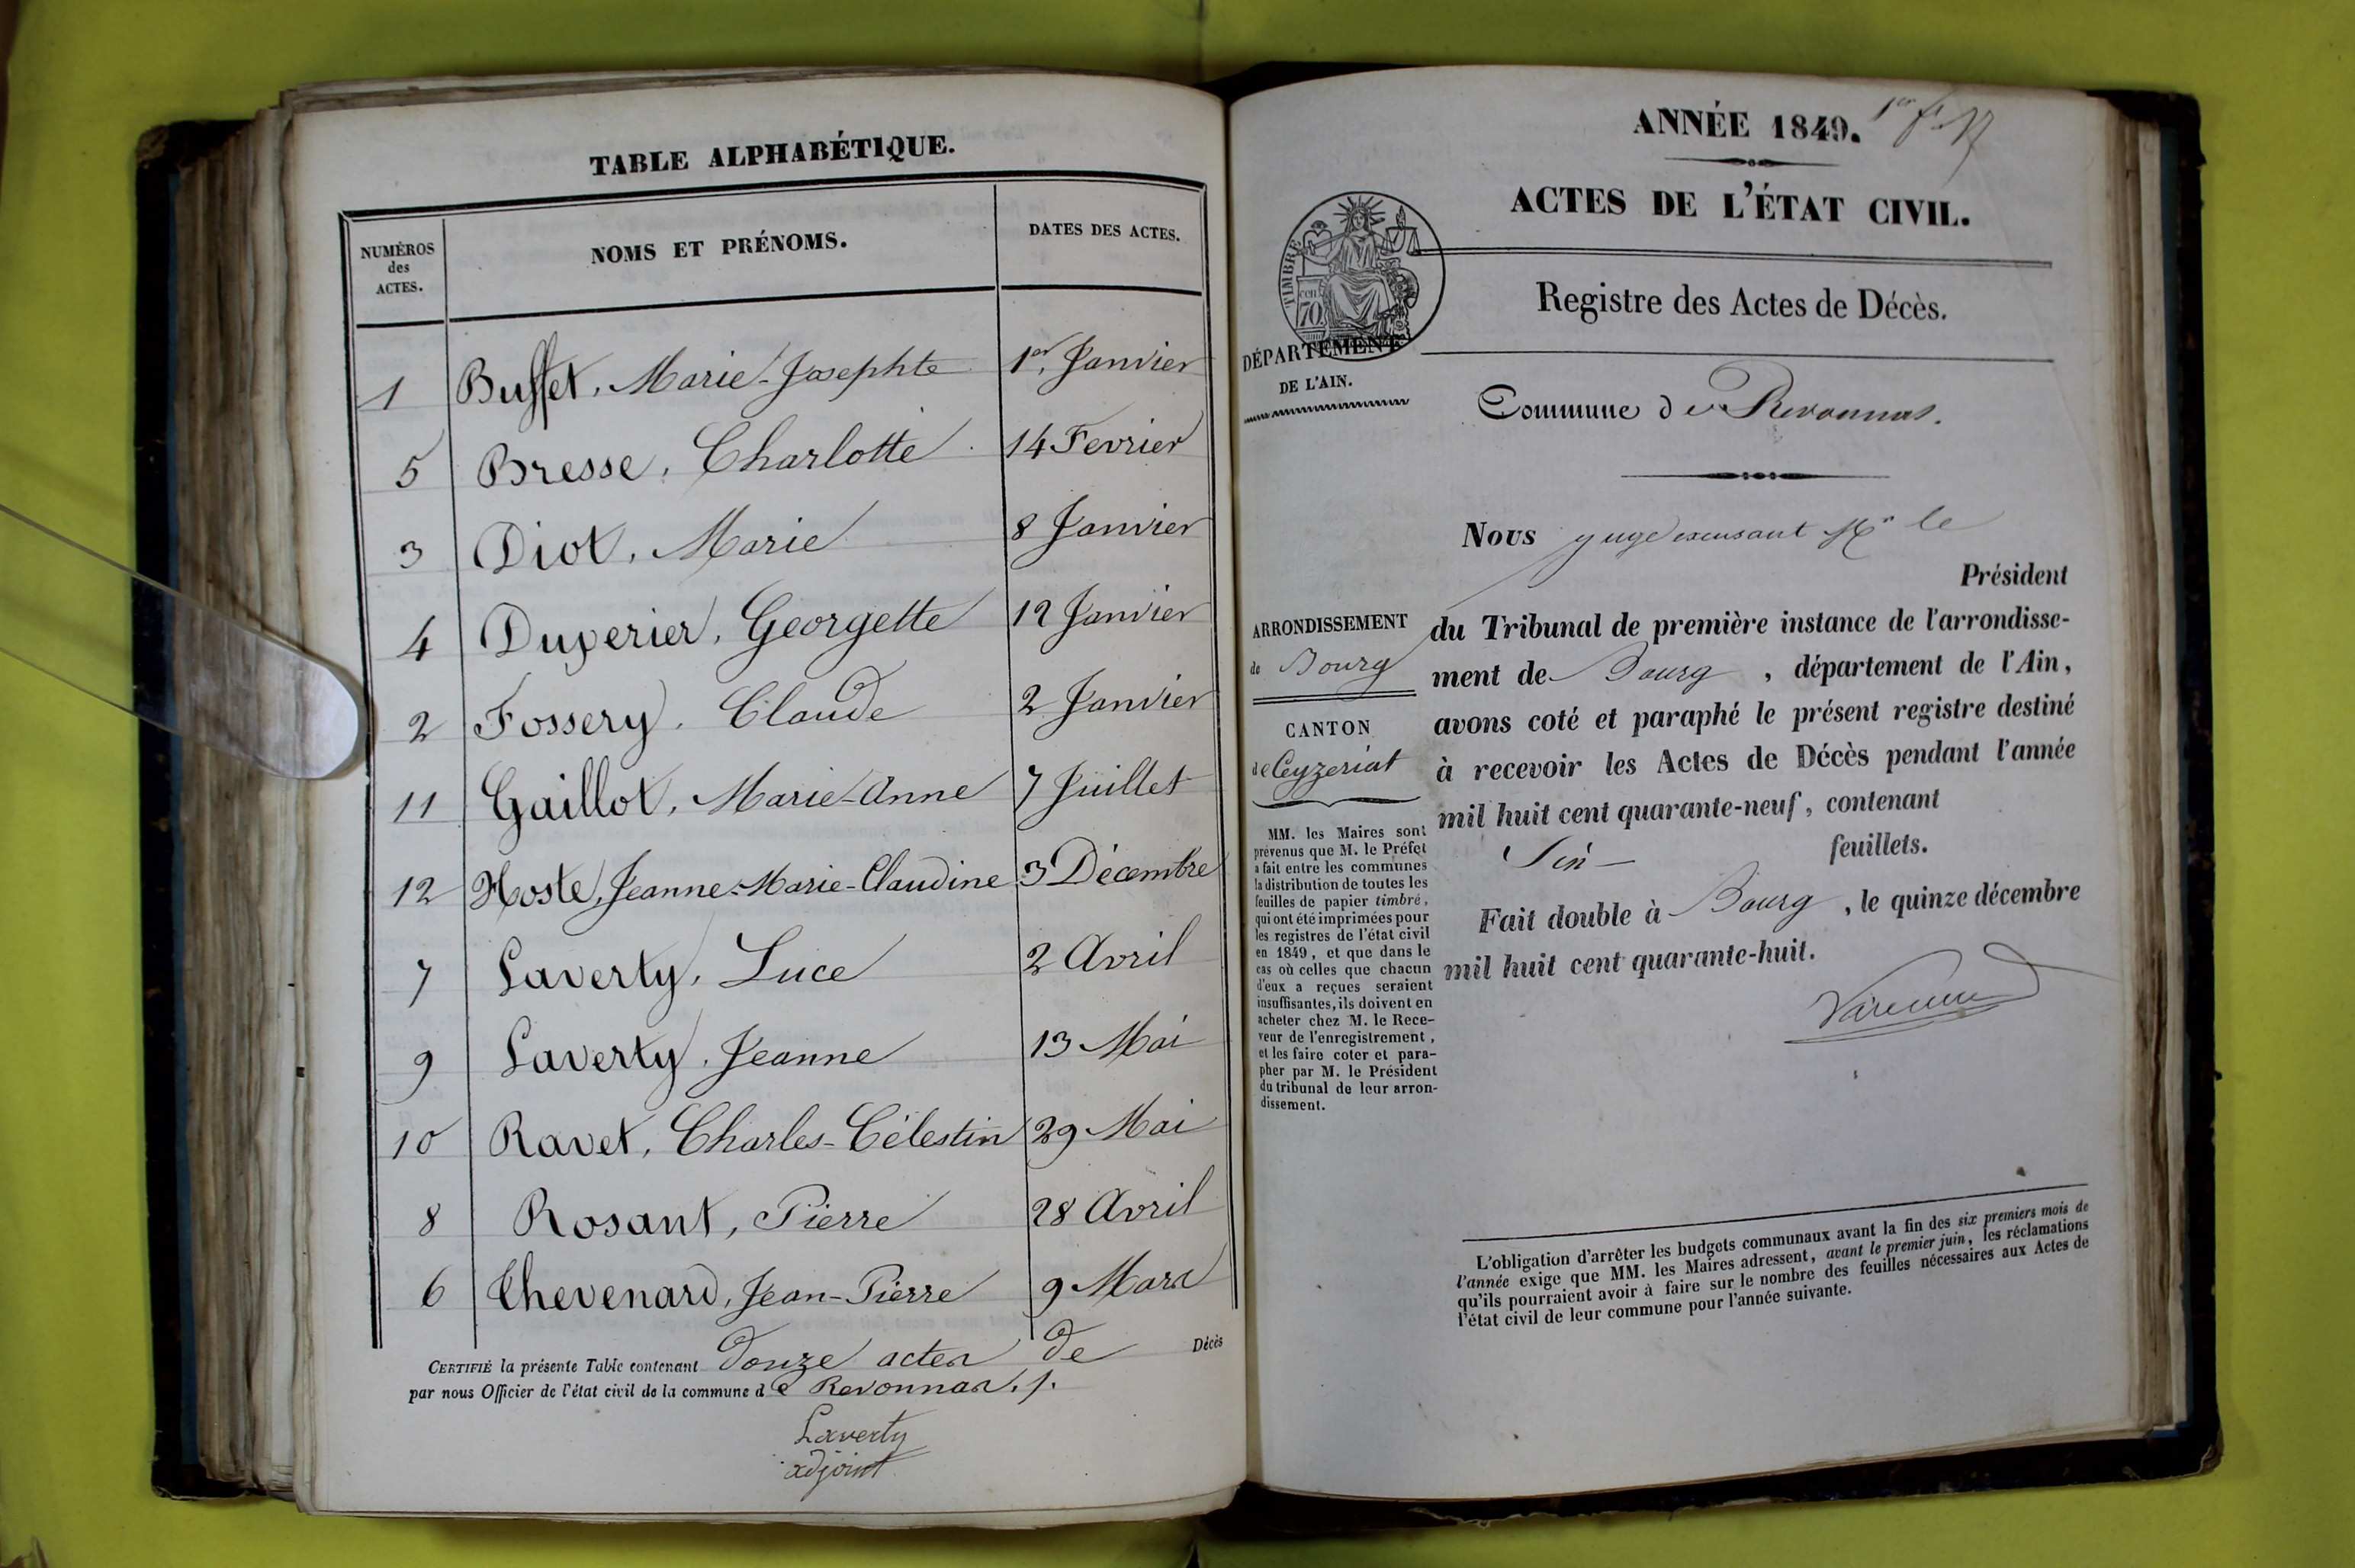 TABLE ALPHABÉTIQUE.
NUMÉROS
des
ACTES.
NOMS ET PRÉNOMS.
DATES DES ACTES.
1 Buffet, Marie-Josephte 1er Janvier
5 Bresse, Charlotte 14 Fevrier
3 Diot, Marie 8 Janvier
4 Duperier, Georgette 12 Janvier
2 Fossery, Claude 2 Janvier
11 Gaillot, Marie-Anne 7 Juillet
12 Hoste, Jeanne-Marie-Claudine 3 Décembre
7 Laverty, Luce 2 Avril
9 Laverty, Jeanne 13 Mai
10 Ravet, Charles-Célestin 29 Mai
8 Rosant, Pierre 28 Avril
6 Thevenard, Jean-Pierre 9 Mars
CERTIFIÉ la présente Table contenant douze actes de Décès
par nous Officier de l'état civil de la commune de Revonnas.
Laverty
adjoint
ANNÉE 1849.
ACTES DE L'ÉTAT CIVIL.
TIMBRE
70
Registre des Actes de Décès.
DÉPARTEMENT
DE L'AIN.
Commune de Revonnas.
Nous juge Mr le
Président
ARRONDISSEMENT
de Bourg
CANTON
de Ceyzeriat
MM. les Maires sont
prévenus que M. le Préfet
a fait entre les communes
la distribution de toutes les
feuilles de papier timbré,
qui ont été imprimées pour
les registres de l'état civil
en 1849, et que dans le
cas où celles que chacun
d'eux a reçues seraient
insuffisantes, ils doivent en
acheter chez M. le Rece-
veur de l'enregistrement,
et les faire coter et para-
pher par M. le Président
du tribunal de leur arron-
dissement.
du Tribunal de première instance de l'arrondisse-
ment de Bourg, département de l'Ain,
avons coté et paraphé le présent registre destiné
à recevoir les Actes de Décès pendant l'année
mil huit cent quarante-neuf, contenant
feuillets.
Fait double à Bourg, le quinze décembre
mil huit cent quarante-huit.
L'obligation d'arrêter les budgets communaux avant la fin des six premiers mois de
l'année exige que MM. les Maires adressent, avant le premier juin, les réclamations
qu'ils pourraient avoir à faire sur le nombre des feuilles nécessaires aux Actes de
l'état civil de leur commune pour l'année suivante.